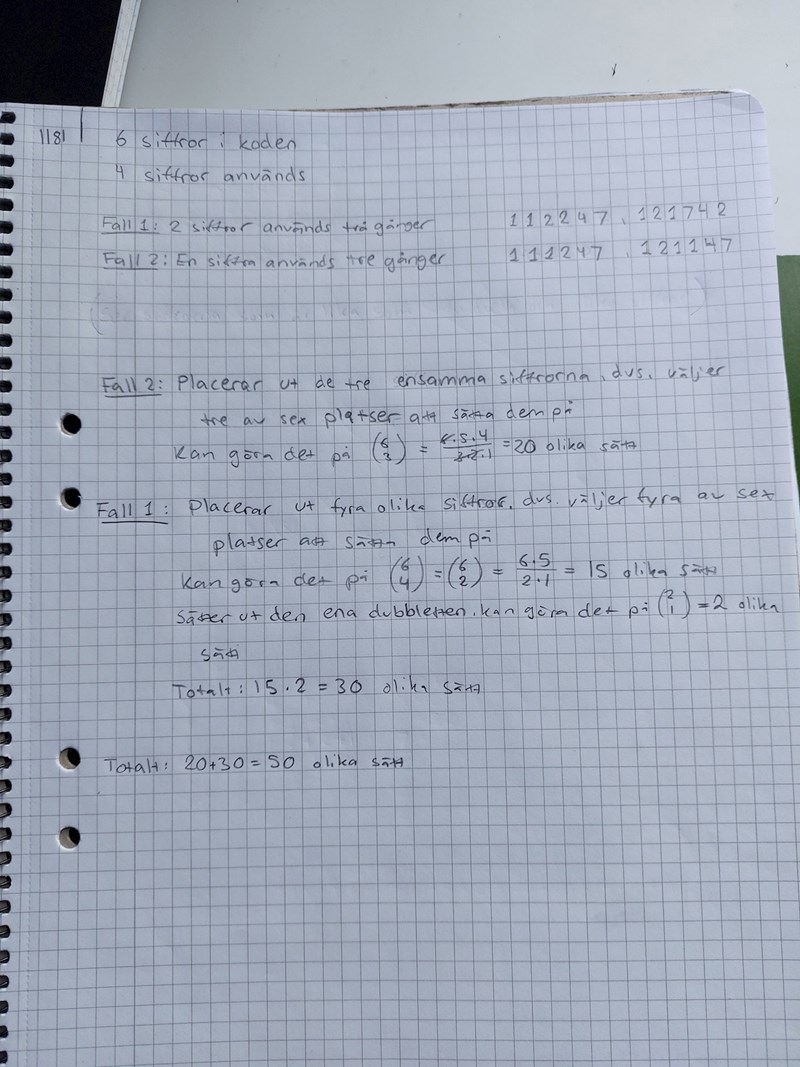 1181
6 siffror i koden
4 siffror används
Fall 1: 2 siffror används två gånger 112247, 121742
Fall 2: En siffra används tre gånger 111247, 121147
Fall 2: Placerar ut de tre ensamma siffrorna, dvs. väljer
tre av sex platser att sätta dem på
Kan göra det på (6 3) = 6·5·4 / 3·2·1 = 20 olika sätt
Fall 1: Placerar ut fyra olika siffror, dvs. väljer fyra av sex
platser att sätta dem på
Kan göra det på (6 4) = (6 2) = 6·5 / 2·1 = 15 olika sätt
Sätter ut den ena dubbletten, kan göra det på (2 1) = 2 olika
sätt
Totalt: 15·2 = 30 olika sätt
Totalt: 20+30 = 50 olika sätt